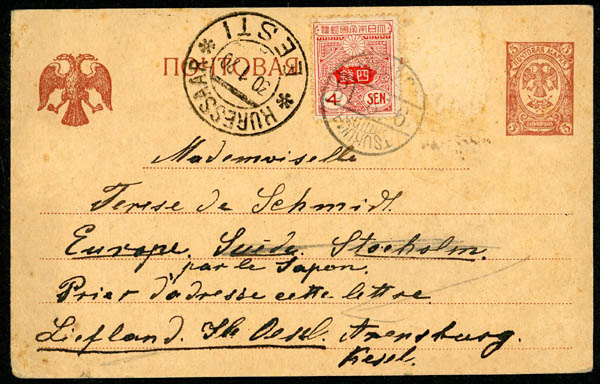 ПОЧТОВАЯ
KURESSAAR * EESTI *
20
大日本帝國郵便
四錢
4 SEN
TSURUGA
5 5
ПОЧТОВАЯ МАРКА
5 5
Mademoiselle
Terese de Schmidt.
Europe. Suède, Stocholm.
par le Japon.
Prier d'adresse cette lettre
Liefland. Ile Oesel. Arensburg.